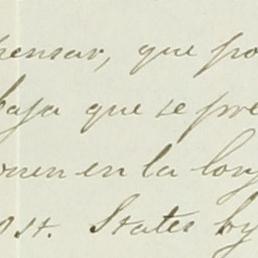 pensar, que po
baja que se pre
onen en la lon
ost. States by